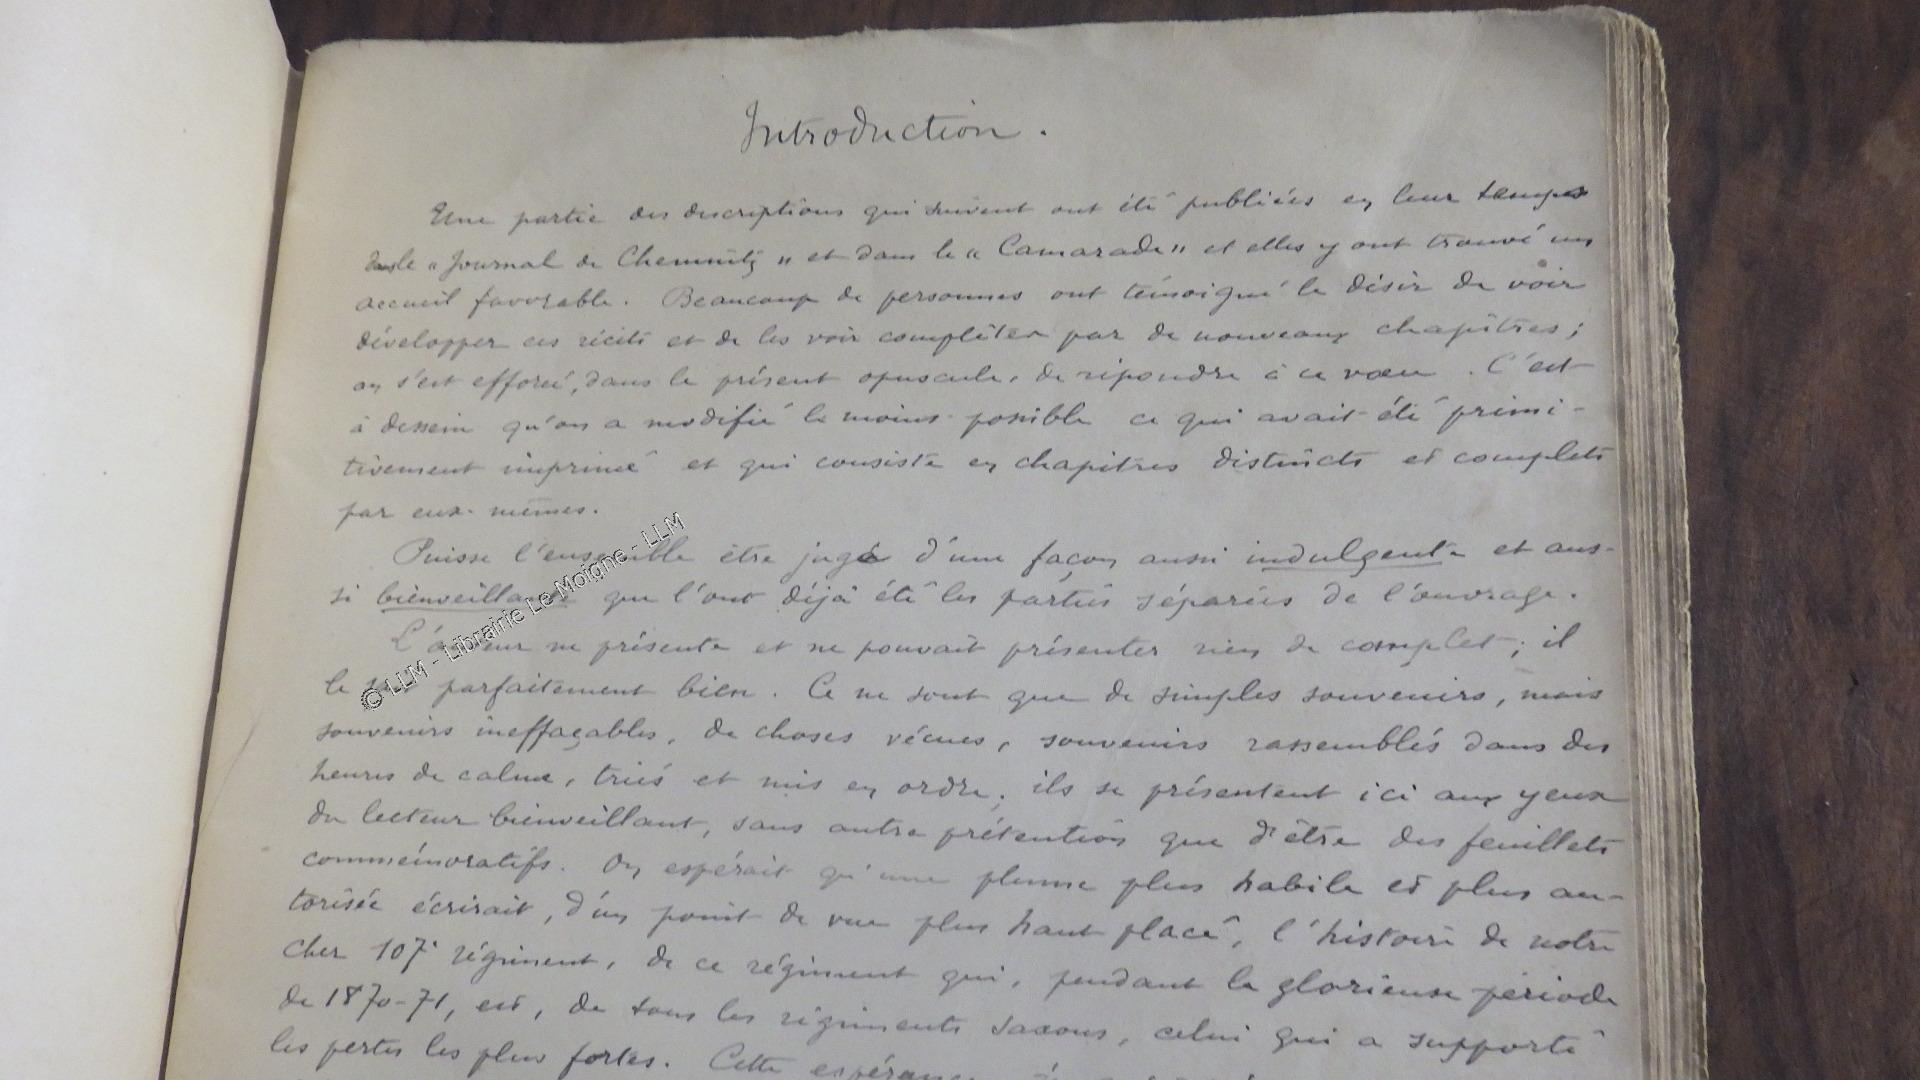 Introduction.
Une partie des descriptions qui suivent ont été publiées en leur temps
dans le « Journal de Chemnitz » et dans le « Camarade » et elles y ont trouvé un
accueil favorable. Beaucoup de personnes ont témoigné le désir de voir
développer ces récits et de les voir compléter par de nouveaux chapîtres ;
on s'est efforcé, dans le présent opuscule, de répondre à ce vœu. C'est
à dessein qu'on a modifié le moins possible ce qui avait été primi-
tivement imprimé et qui consiste en chapitres distincts et complets
par eux-mêmes.
Puisse l'ensemble être jugé d'une façon aussi indulgente et aus-
si bienveillante que l'ont déjà été les parties séparées de l'ouvrage.
L'auteur ne présente et ne pouvait présenter rien de complet ; il
le sait parfaitement bien. Ce ne sont que de simples souvenirs, mais
souvenirs ineffaçables, de choses vécues, souvenirs rassemblés dans des
heures de calme, triés et mis en ordre ; ils se présentent ici aux yeux
du lecteur bienveillant, sans autre prétention que d'être des feuillets
commémoratifs. On espérait qu'une plume plus habile et plus au-
torisée écrirait, d'un point de vue plus haut placé, l'histoire de notre
cher 107e régiment, de ce régiment qui, pendant la glorieuse période
de 1870-71, est, de tous les régiments saxons, celui qui a supporté
les pertes les plus fortes. Cette espérance
© LLM - Librairie Le Moigne - LLM